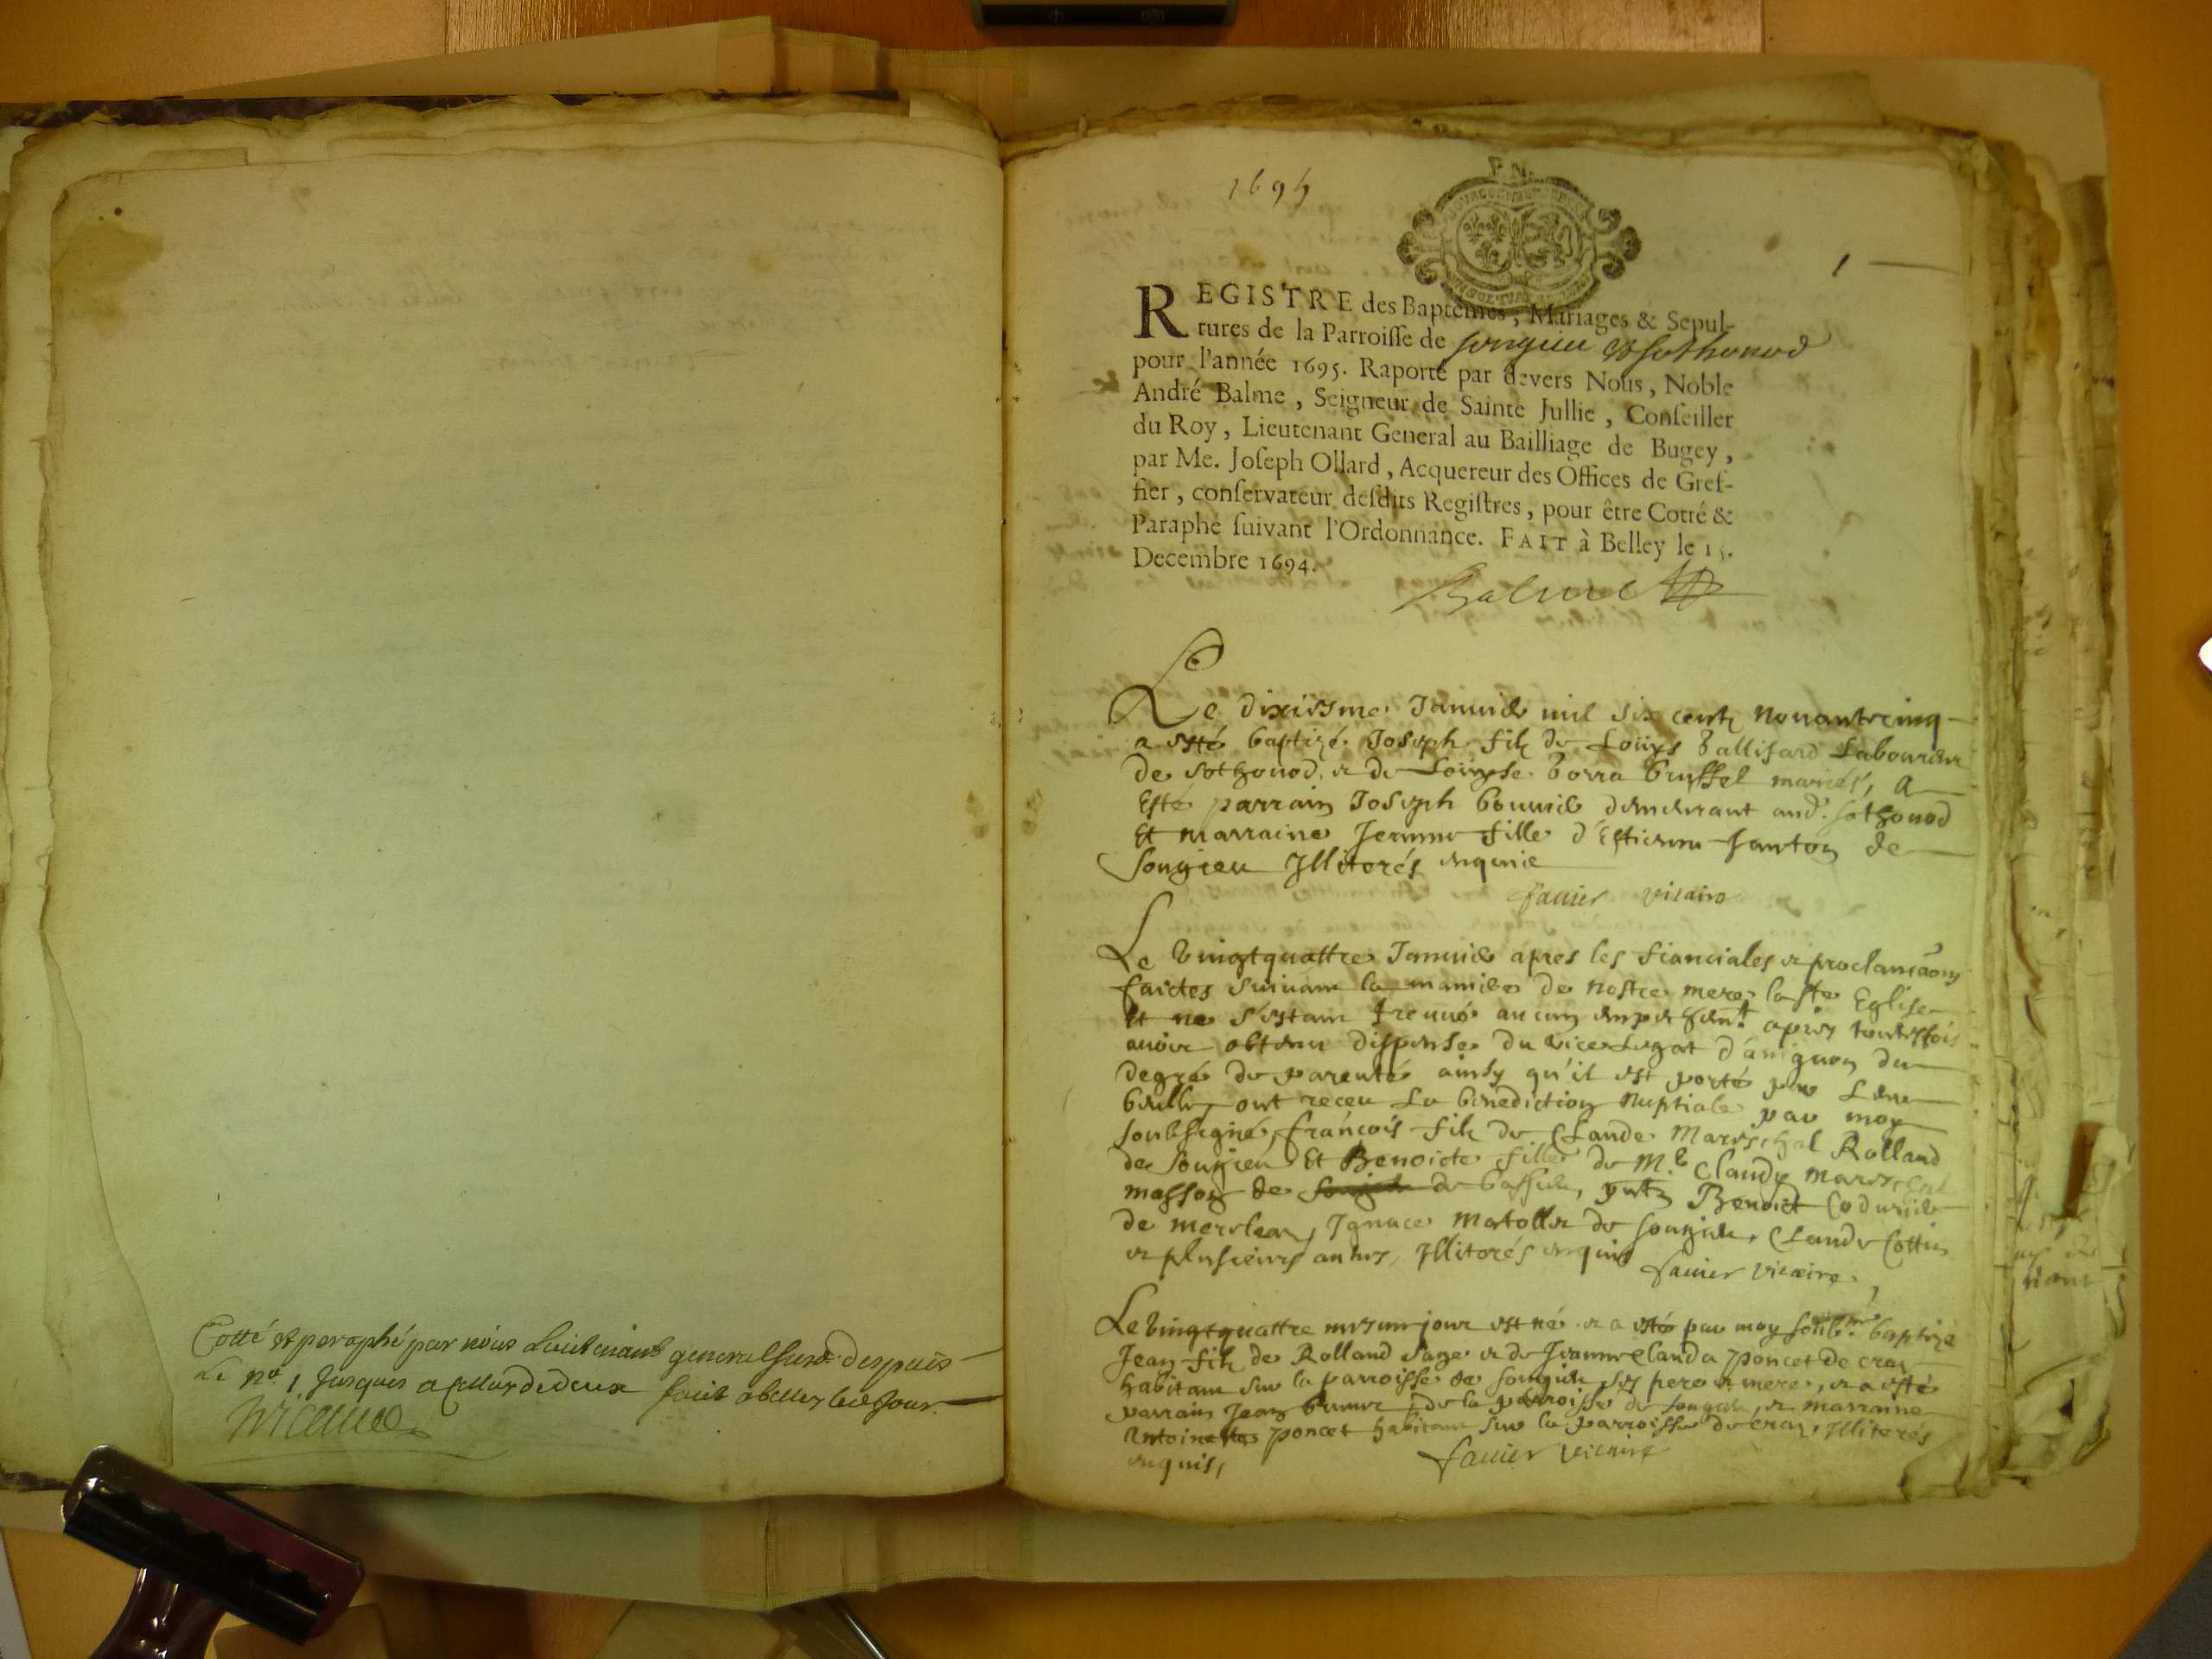 Cotté et paraphé par nous Lieutenant general susd. despuis
Le no. 1 Jusques a celluy de deux fait a belley led Jour.
1695
1
REGISTRE des Baptêmes, Mariages & Sepul-
tures de la Parroisse de songieu & sothonod
pour l'année 1695. Raporté par devers Nous, Noble
André Balme, Seigneur de Sainte Jullie, Conseiller
du Roy, Lieutenant General au Bailliage de Bugey,
par Me. Joseph Ollard, Acquereur des Offices de Gref-
fier, conservateur desdits Registres, pour être Cotté &
Paraphé suivant l'Ordonnance. FAIT à Belley le 15.
Decembre 1694.
Balme
Le dixiesme Janvier mil six cents nonante cinq
a esté baptizé Joseph fils de Louys Vallifard Laboureur
de sothonod, et de Louyse borra mariés, a
Esté parrain Joseph bouvier demeurant aud. sothonod
Et marraine Jeanne fille d'Estienne Janton de
Songieu Illiterés enquis
favier vicaire
Le vingtquattre Janvier apres les fianciales et proclamaons
faictes suivant la maniere de nostre mere la ste Eglise
Et ne s'estant treuvé aucun empeschemt. apres toutesfois
avoir obtenu dispense du vice Legat d'avignon du
degré de parenté ainsy qu'il est porté par Leur
bulle, ont receu La benediction Nuptiale par moy
soubsigné, françois fils de Claude Mareschal Rolland
de Songieu Et Benoicte fille de M.e Claude mareschal
masson de de bassieu, pnts Benoict Codurier
de Ignace Martollet de songieu, Claude Cottin
et plusieurs autres, Illiterés enquis favier vicaire
Le vingtquattre mesme jour est né et a esté par moy soubsné baptizé
Jean fils de Rolland Sage et de Jeanne Clauda poncet de craz
habitant sur la parroisse de songieu ses pere et mere, et a esté
parrain Jean de la parroisse de songieu, et marraine
Antoinette poncet habitant sur la parroisse de craz, Illiterés
enquis, favier vicaire